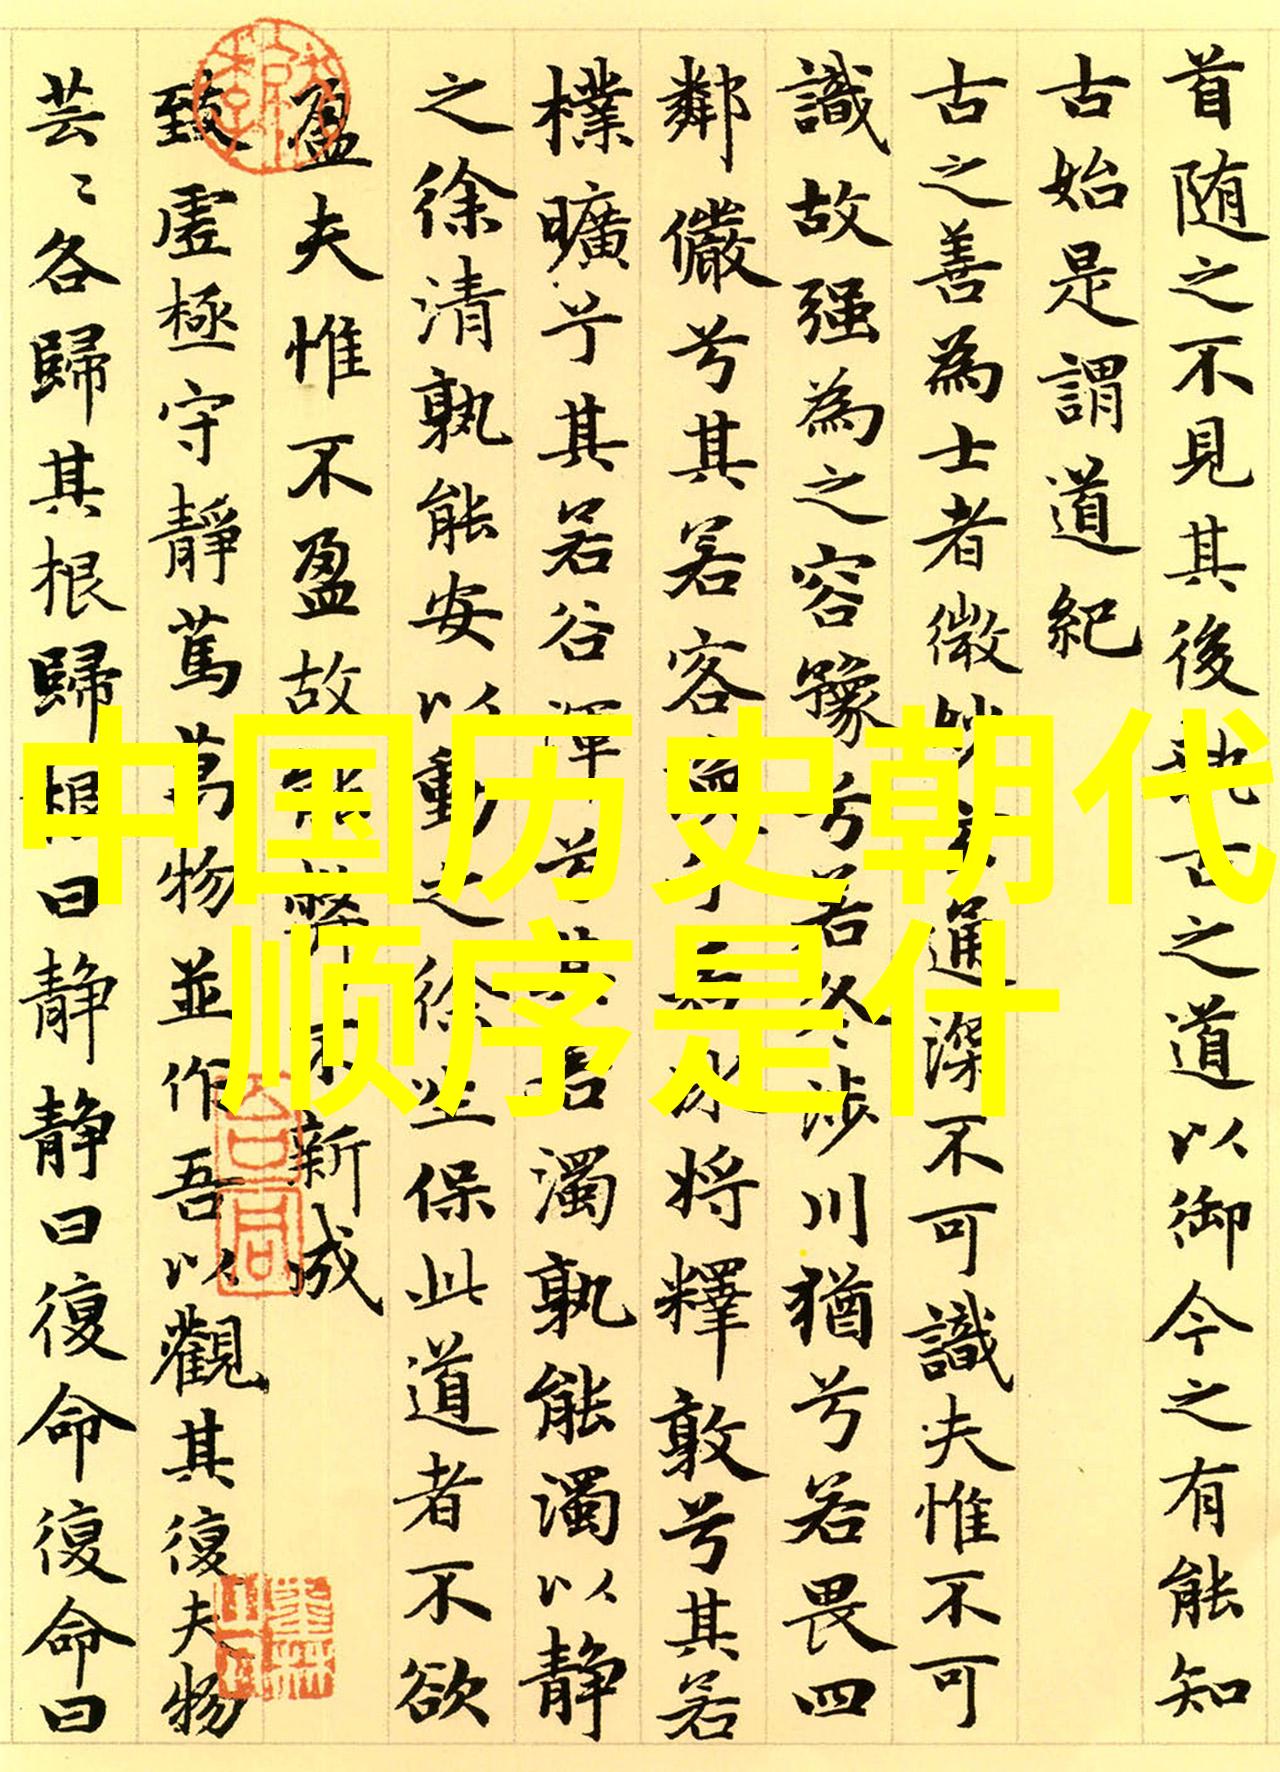 首随之不見其後執古之道以御今之有能知
古始是謂道紀
古之善為士者微妙玄通深不可識夫惟不可
識故强為之容豫兮若冬涉川猶兮若畏四
鄰儼兮其若客渙兮若冰将釋敦兮其若
樸曠兮其若谷渾兮其若濁孰能濁以静
之徐清孰能安以動之徐生保此道者不欲
盈夫惟不盈故能弊不新成
致虚極守靜篤萬物並作吾以觀其復夫物
芸〻各歸其根歸根曰静静曰復命復命曰
中国历史朝代
顺序是什